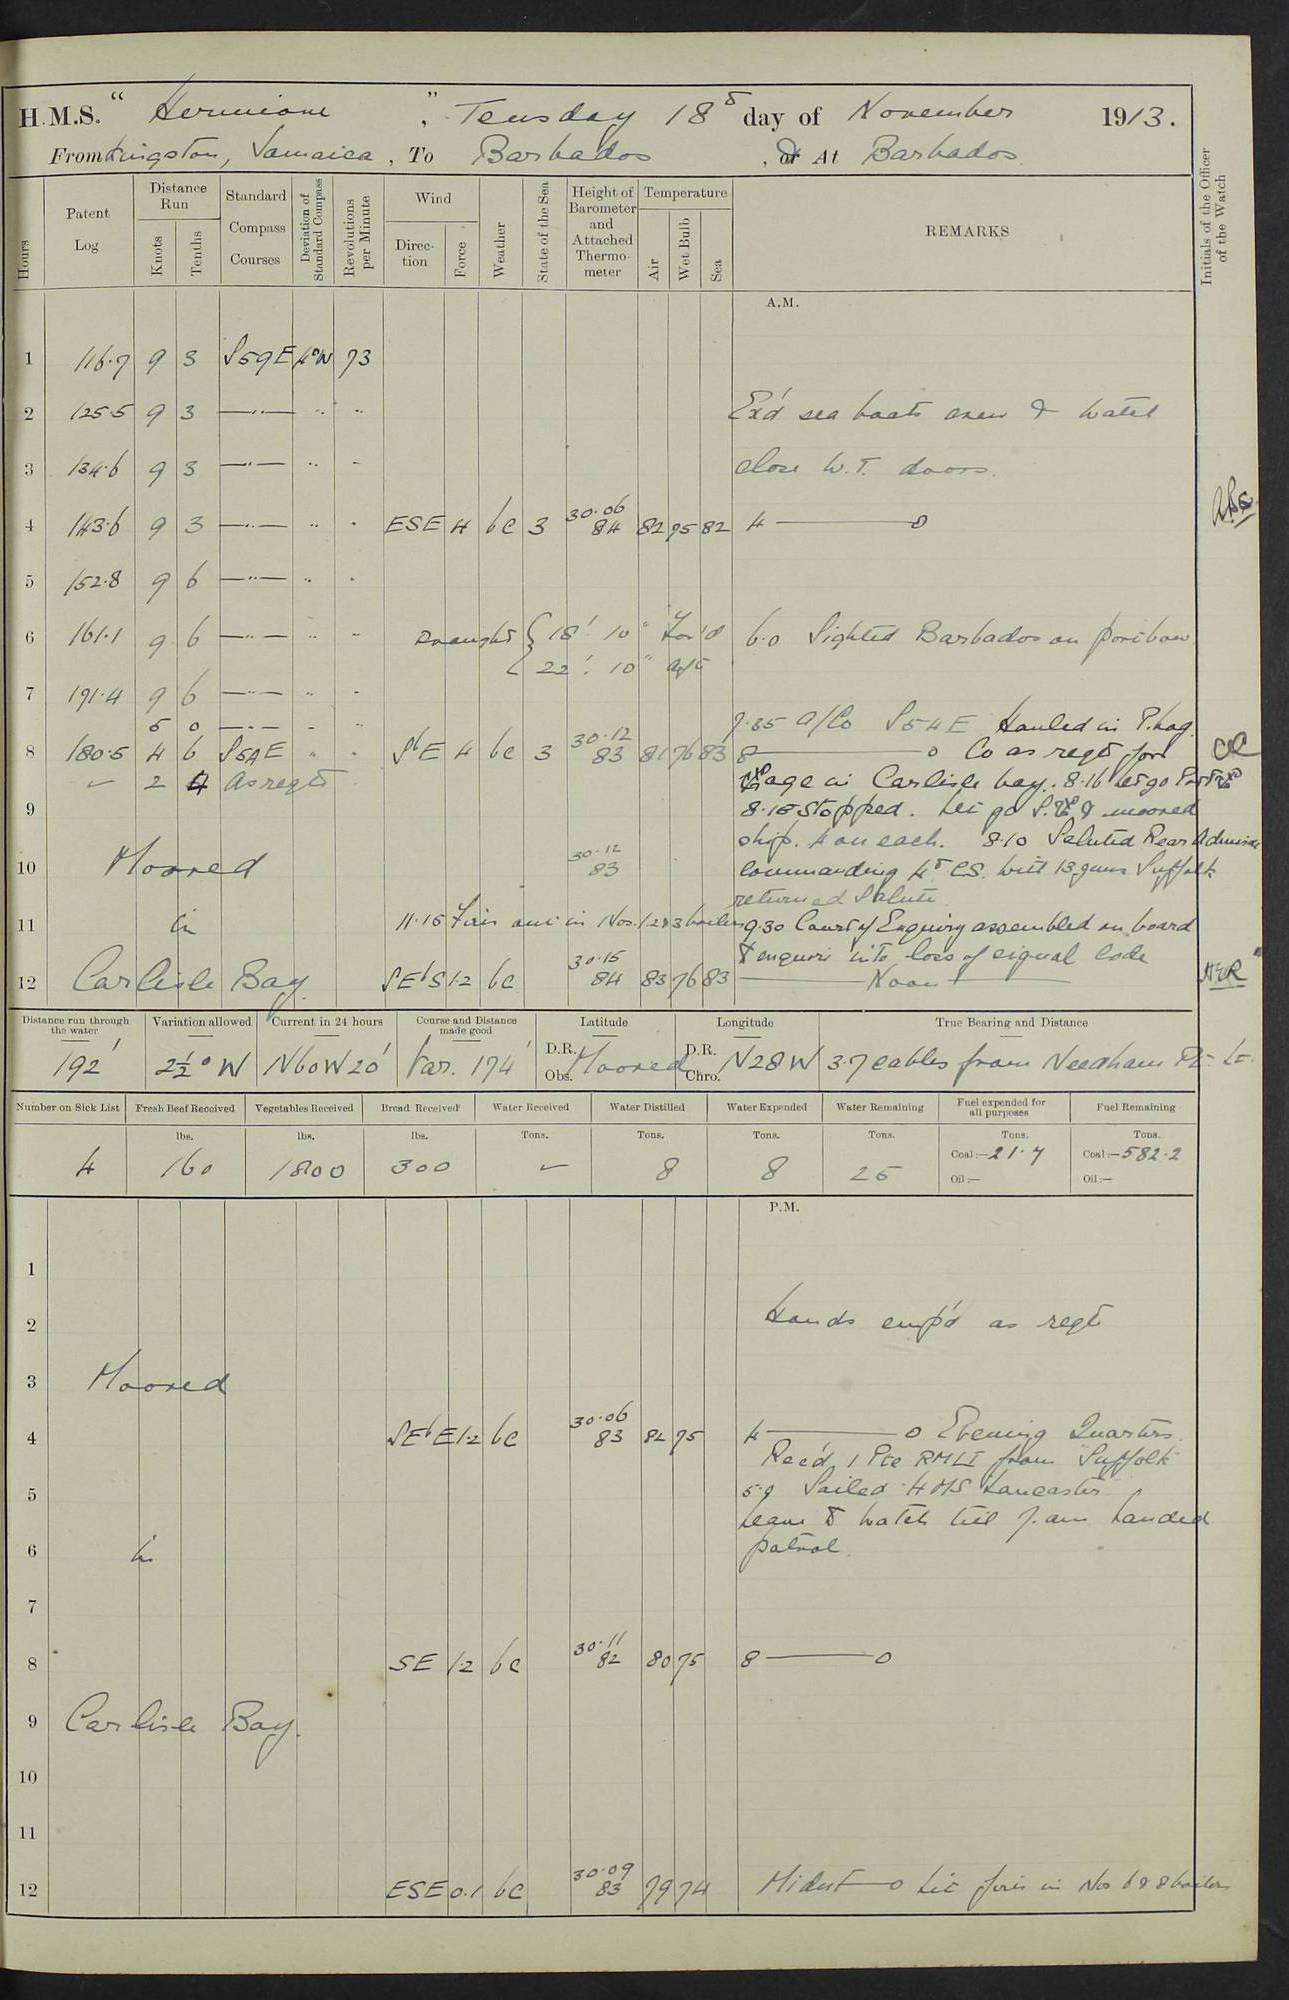 H.M.S. " Hermione ", Tuesday 18th day of November 1913.
From Kingston, Jamaica, To Barbados, or At Barbados.
Hours
Patent Log
Distance Run
Knots
Tenths
Standard Compass Courses
Deviation of Standard Compass
Revolutions per Minute
Wind
Direction
Force
Weather
State of the Sea
Height of Barometer and Attached Thermometer
Temperature
Air
Wet Bulb
Sea
REMARKS
Initials of the Officer of the Watch
A.M.
1 116.7 9 3 S59E 4°W 73
2 125.5 9 3 —"— " " Ex'd sea boats crew & watch
3 134.6 9 3 —"— " " close W.T. doors.
4 143.6 9 3 —"— " " ESE 4 bc 3 30.06 84 82 75 82 4 ——— 0
5 152.8 9 6 —"— " "
6 161.1 9 6 —"— " " Draught { 18' 10" For'd 6.0 Sighted Barbados on port bow
22' 10" Aft
7 191.4 9 6 —"— " "
5 0 —"— " " 7.35 A/Co S54E Hauled in P. log
8 180.5 4 6 S54E " " SbE 4 bc 3 30.12 83 81 76 83 8 ——— 0 Co as reqd for
✓ 2 4 As reqd anchorage in Carlisle bay. 8.16 let go Port
9 8.18 Stopped. Let go S. & moored
ship. 4 on each. 8.10 Saluted Rear Admiral
10 Moored 30.12 83 Commanding 4th CS. with 13 guns Suffolk
returned Salute
11 in 11.15 Fires out in Nos 1 2 & 3 boilers 9.30 Court of Enquiry assembled on board
to enquire into loss of signal code
12 Carlisle Bay SEbS 1.2 bc 30.15 84 83 76 83 ——— Noon ———
Distance run through the water
Variation allowed
Current in 24 hours
Course and Distance made good
Latitude
Longitude
True Bearing and Distance
192' 2½° W N60W 20' Var. 174' D.R. Obs. Moored D.R. Chro. N28W 3.7 cables from Needham Pt. Lt.
Number on Sick List
Fresh Beef Received
Vegetables Received
Bread Received
Water Received
Water Distilled
Water Expended
Water Remaining
Fuel expended for all purposes
Fuel Remaining
lbs. lbs. lbs. Tons. Tons. Tons. Tons. Tons. Tons.
4 160 1800 300 ✓ 8 8 25 Coal:—21.7 Coal:—582.2
Oil:— Oil:—
P.M.
1
2 Hands emp'd as reqd
3 Moored
4 SEbE 1.2 bc 30.06 83 82 75 4 ——— 0 Evening Quarters.
Rec'd 1 Pte RMLI from "Suffolk"
5 5.9 Sailed HMS Lancaster.
Leave to watch till 7. am Landed
6 in patrol.
7
8 SE 1.2 bc 30.11 82 80 75 8 ——— 0
9 Carlisle Bay.
10
11
12 ESE 0.1 bc 30.09 83 79 74 Midnt — 0 Lit fires in Nos 6 & 8 boilers